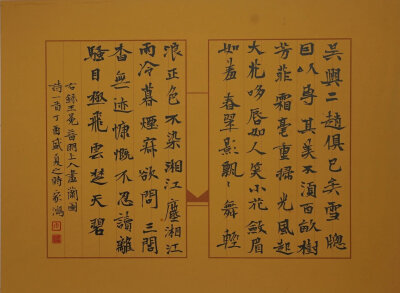 吳興二趙俱已矣雪牕
因以專其美不須百畝樹
芳菲霜毫重掃光風起
大花哆唇如人笑小花斂眉
如羞春翠影飄〻舞輕
浪正色不染湘江塵湘江
雨冷暮煙寂欲問三閭
杳無迹慷慨不忍讀離
騷目極飛雲楚天碧
右錄王冕普明上人畫蘭圖
詩一首丁酉歲之時家鴻